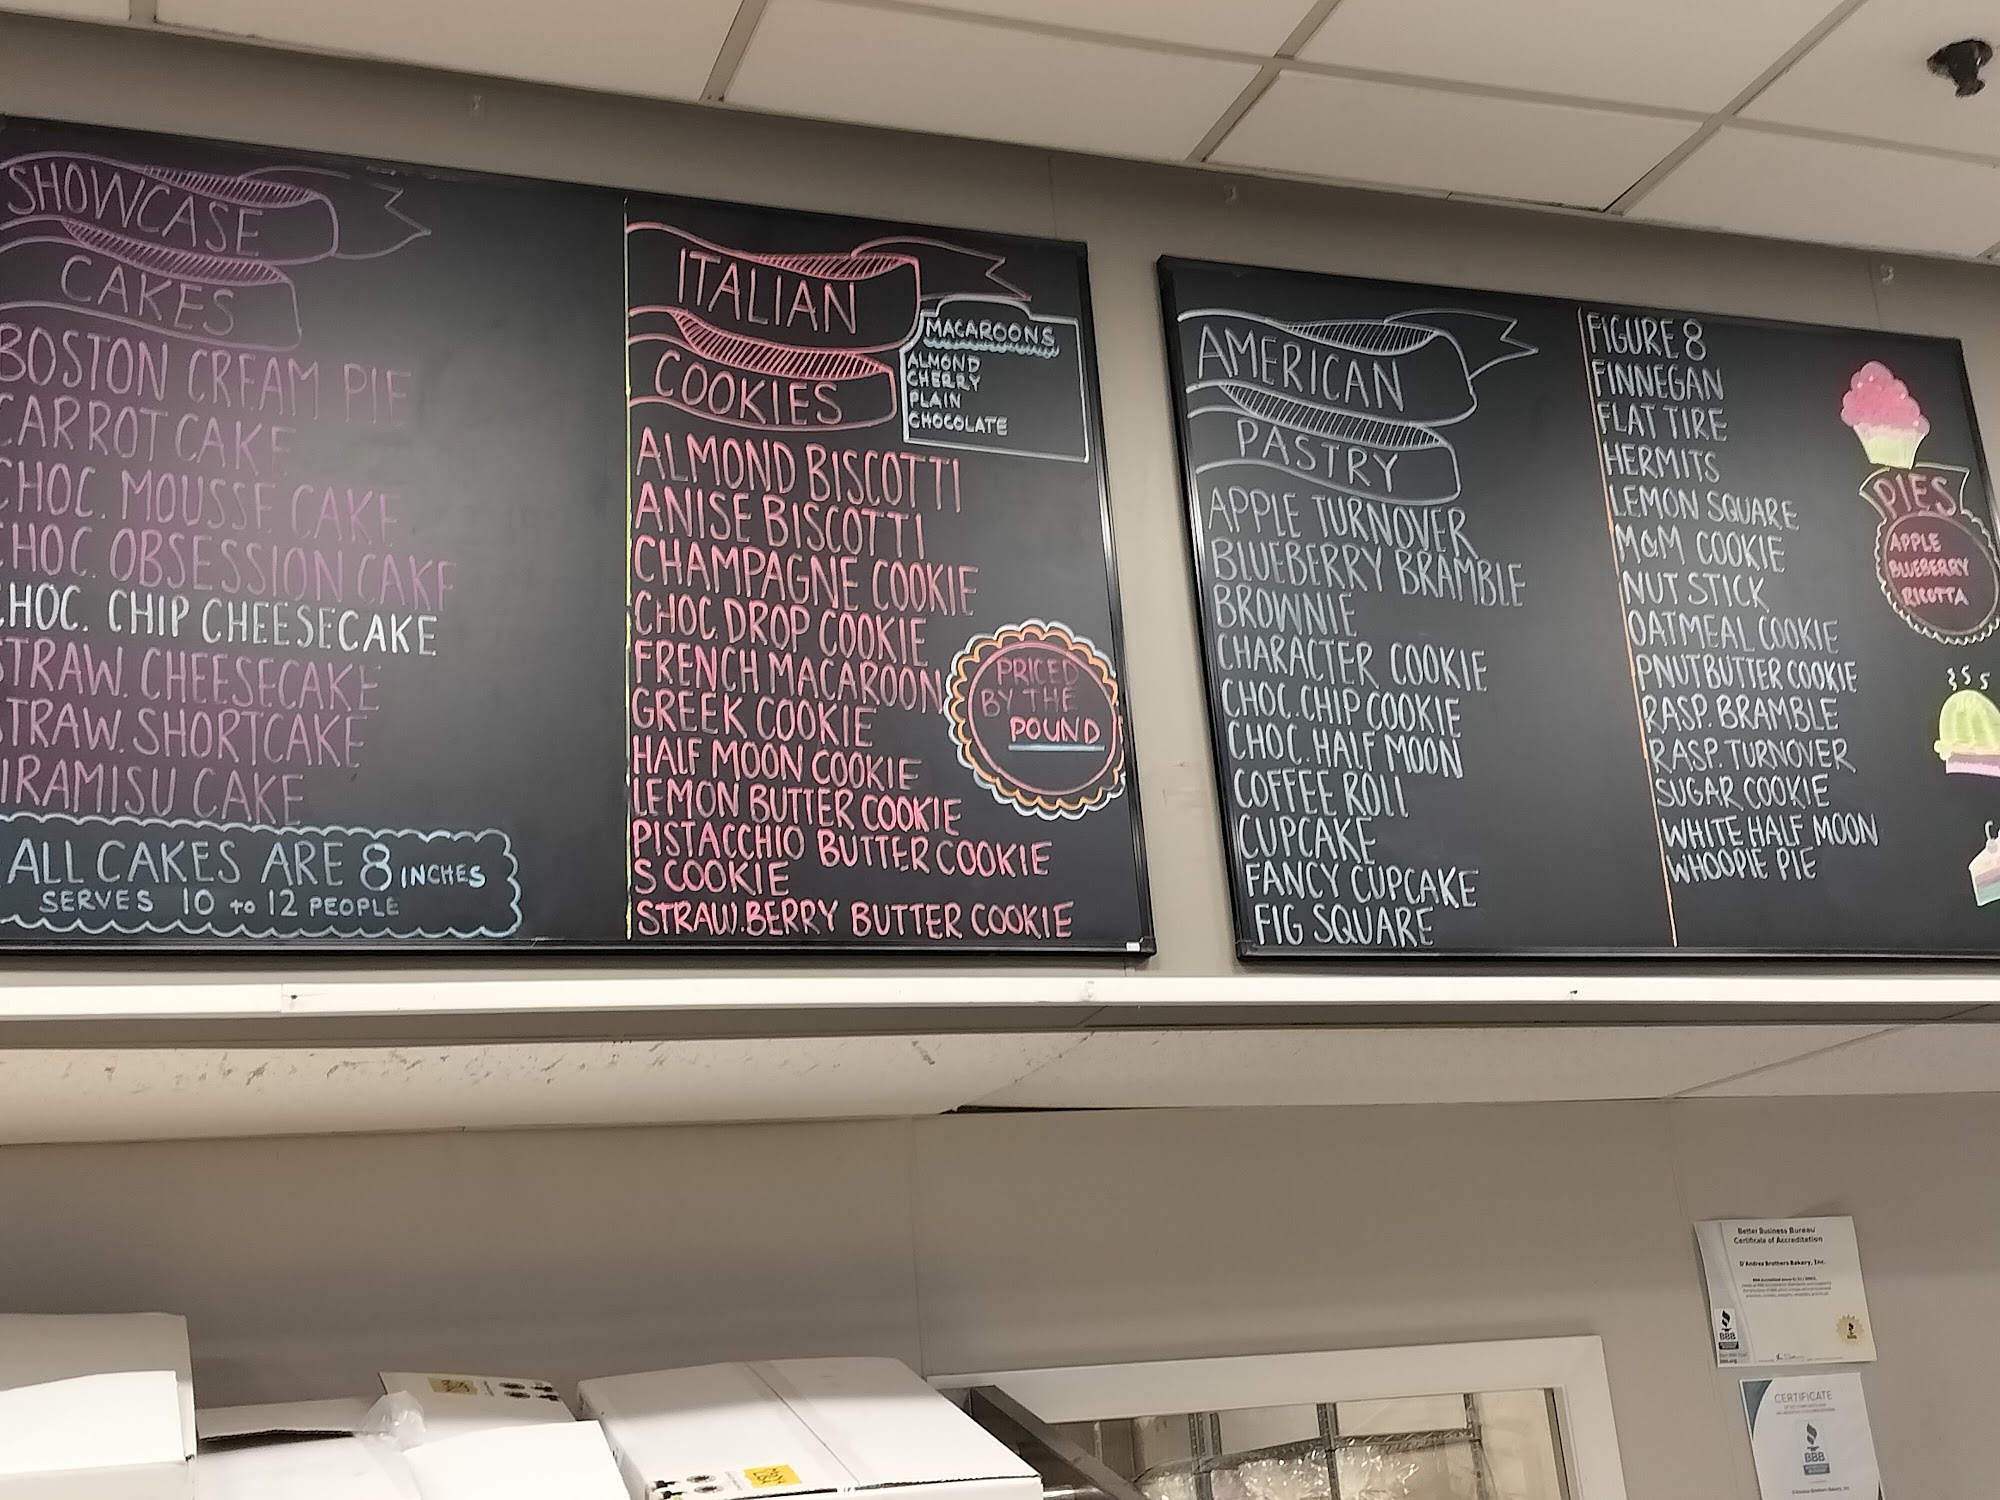 SHOWCASE
CAKES
BOSTON CREAM PIE
CARROT CAKE
CHOC. MOUSSE CAKE
CHOC. OBSESSION CAKE
CHOC. CHIP CHEESECAKE
STRAW. CHEESECAKE
STRAW. SHORTCAKE
TIRAMISU CAKE
ALL CAKES ARE 8 INCHES
SERVES 10 to 12 PEOPLE
ITALIAN
COOKIES
MACAROONS
ALMOND
CHERRY
PLAIN
CHOCOLATE
ALMOND BISCOTTI
ANISE BISCOTTI
CHAMPAGNE COOKIE
CHOC. DROP COOKIE
FRENCH MACAROON
GREEK COOKIE
HALF MOON COOKIE
LEMON BUTTER COOKIE
PISTACCHIO BUTTER COOKIE
S COOKIE
STRAW.BERRY BUTTER COOKIE
PRICED
BY THE
POUND
AMERICAN
PASTRY
APPLE TURNOVER
BLUEBERRY BRAMBLE
BROWNIE
CHARACTER COOKIE
CHOC. CHIP COOKIE
CHOC. HALF MOON
COFFEE ROLL
CUPCAKE
FANCY CUPCAKE
FIG SQUARE
FIGURE 8
FINNEGAN
FLAT TIRE
HERMITS
LEMON SQUARE
M&M COOKIE
NUT STICK
OATMEAL COOKIE
PNUTBUTTER COOKIE
RASP. BRAMBLE
RASP. TURNOVER
SUGAR COOKIE
WHITE HALF MOON
WHOOPIE PIE
PIES
APPLE
BLUEBERRY
RICOTTA
Better Business Bureau
Certificate of Accreditation
D'Andrea Brothers Bakery, Inc.
BBB
CERTIFICATE
BBB